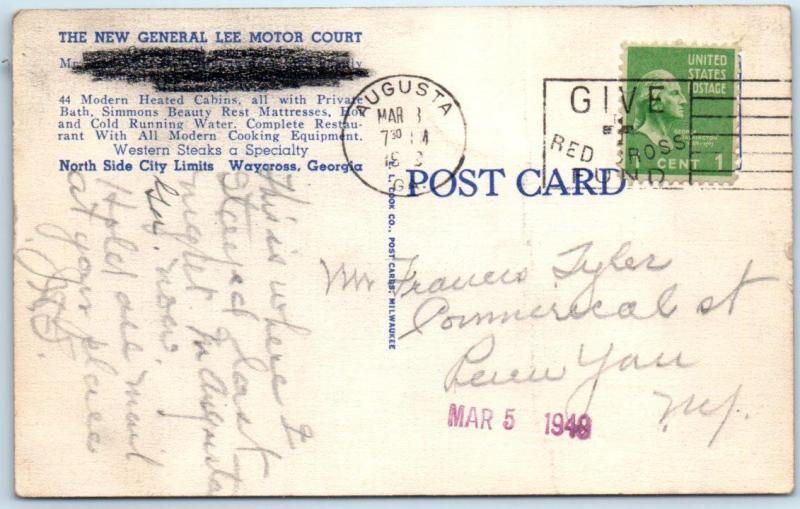 THE NEW GENERAL LEE MOTOR COURT
44 Modern Heated Cabins, all with Private
Bath, Simmons Beauty Rest Mattresses, Hot
and Cold Running Water. Complete Restau-
rant With All Modern Cooking Equipment.
Western Steaks a Specialty
North Side City Limits Waycross, Georgia
This is where I
stayed last
night in Augusta
Ga. now.
Hold all mail
at your place
E. L. COOK CO., POST CARDS, MILWAUKEE
POST CARD
AUGUSTA
MAR
730
GA.
GIVE
RED CROSS
FUND
UNITED
STATES
POSTAGE
CENT 1
Mr Francis Tyler
Commerical st
Penn Yan
N.Y.
MAR 5 1949